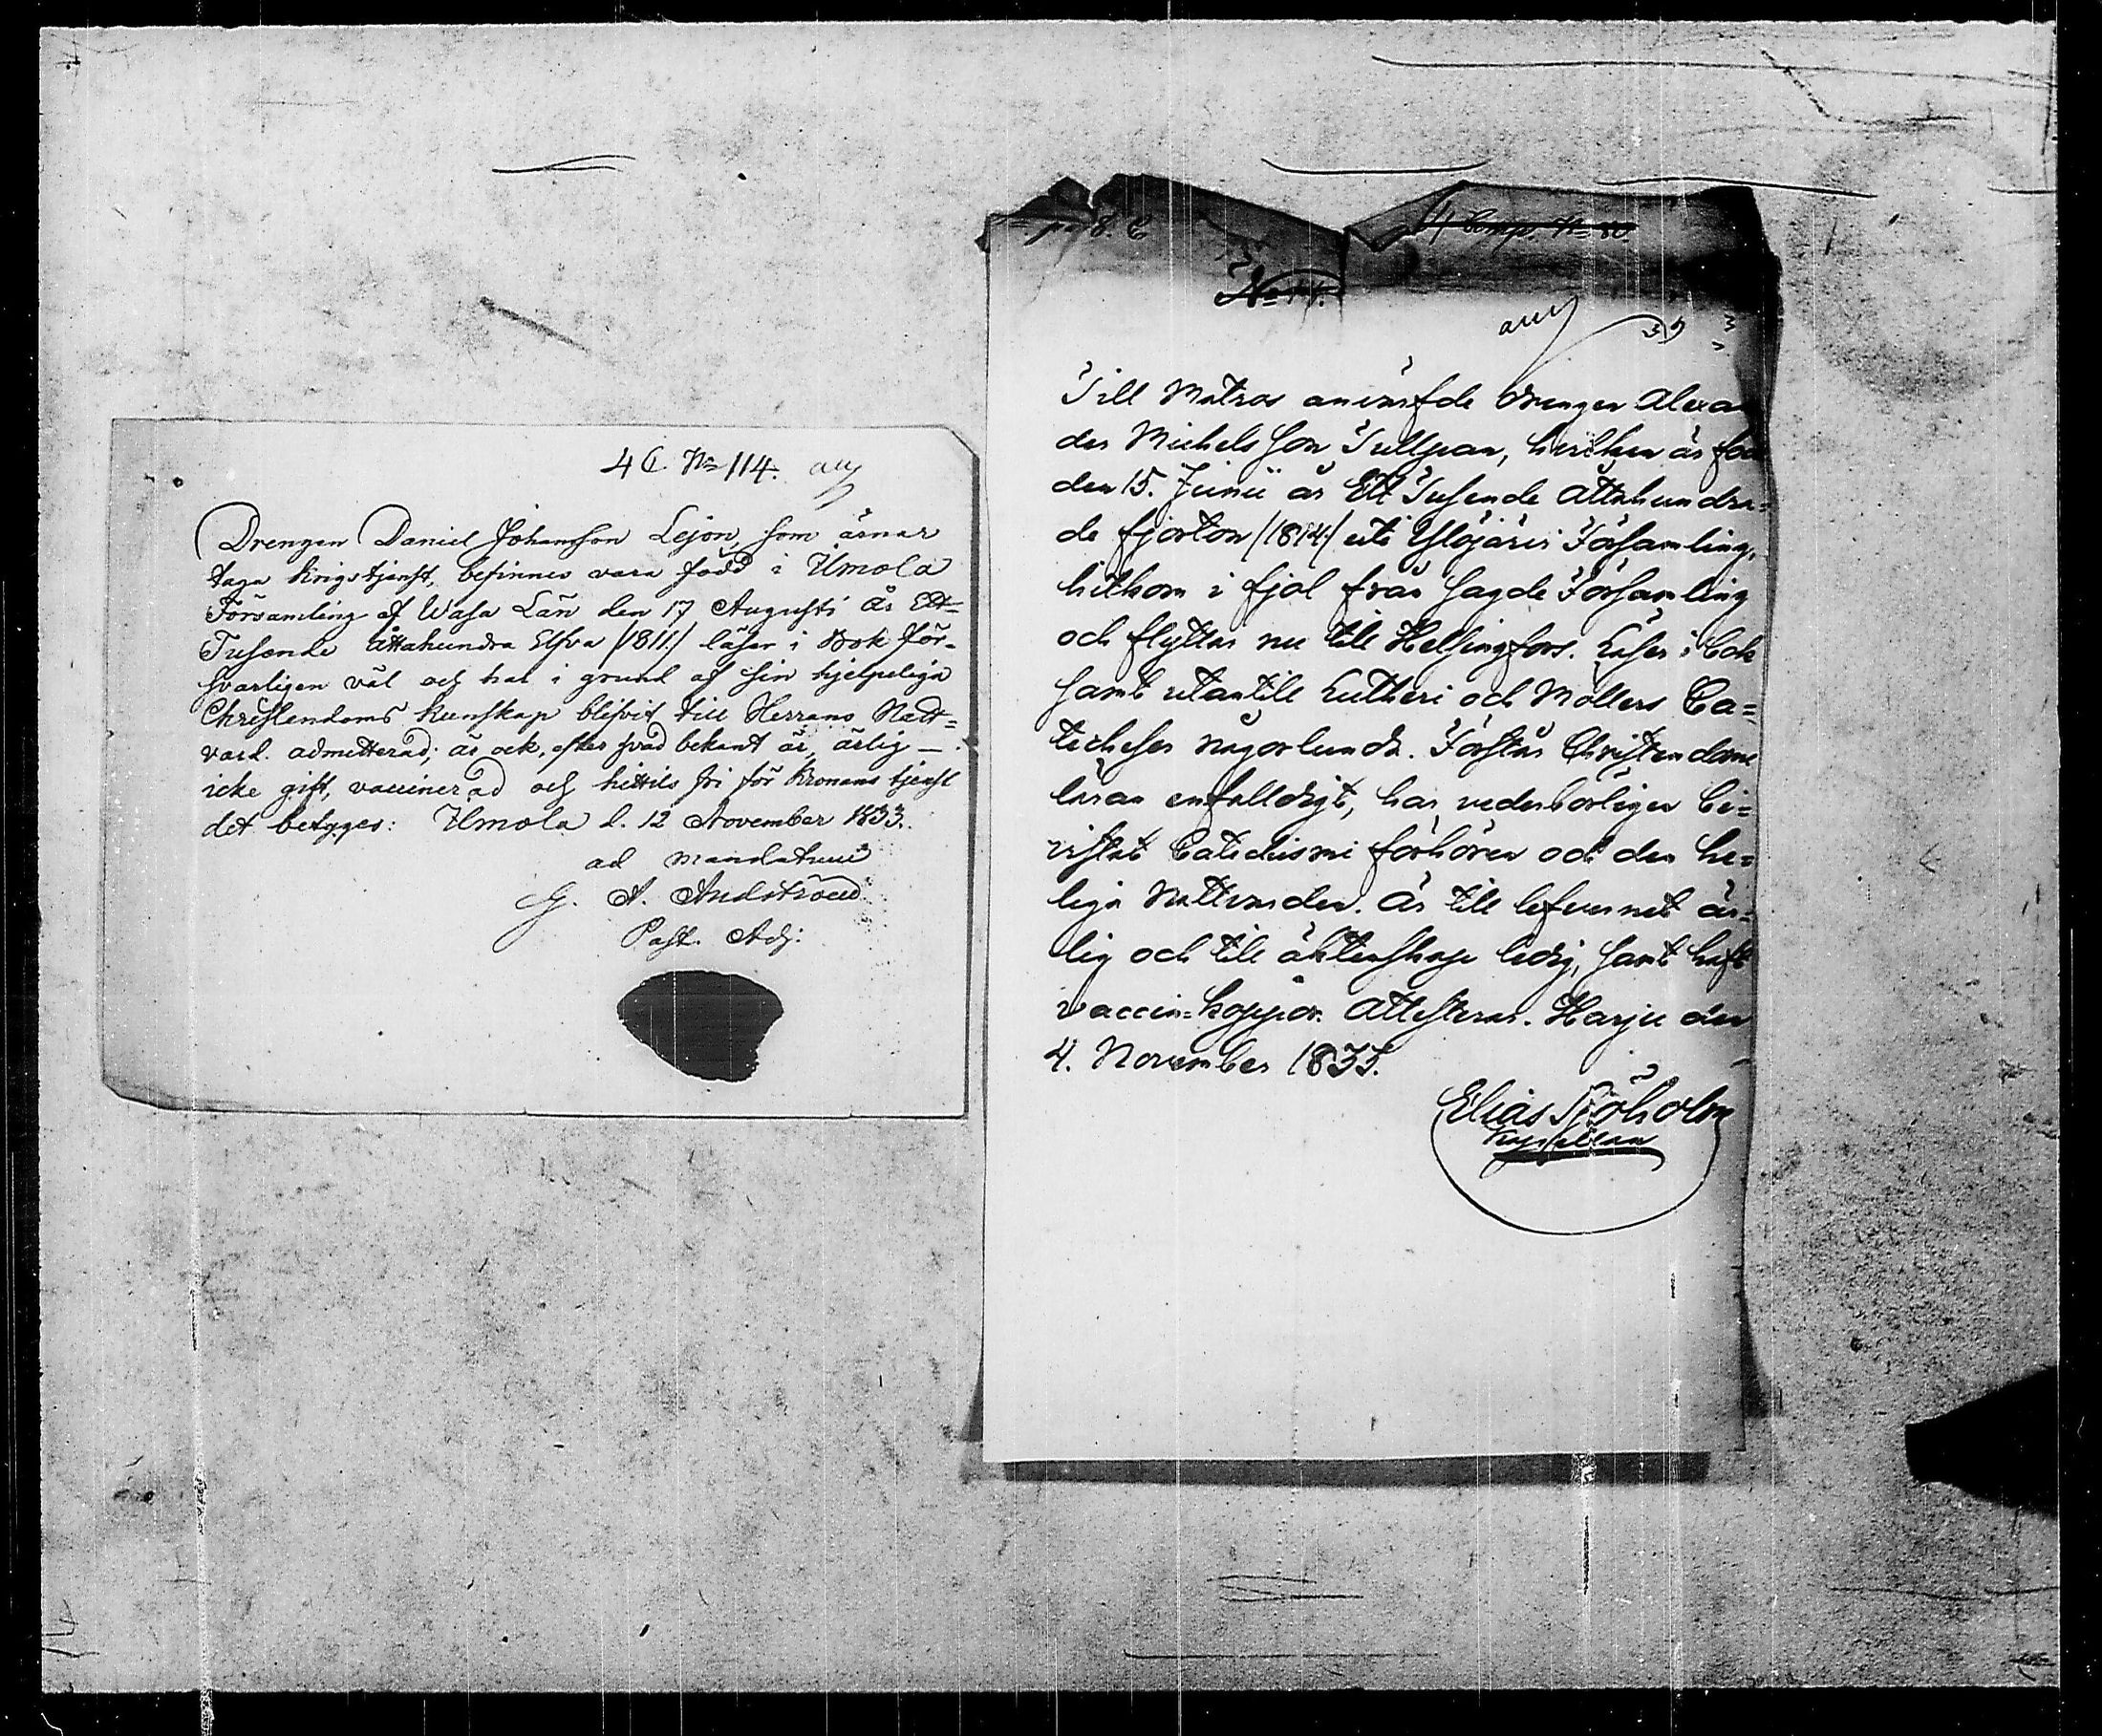 4 C. No 114.
Drengen Daniel Johansson Lejon, som ärnar
taga krigstjenst, befinnes vara född i Ilmola
Församling af Wasa Län den 17 Augusti år Ett-
Tusende Åttahundra Elfva /1811./ läser i Bok för-
svarligen väl och har i grund af sin hjelpeliga
Christendoms kunskap blifvit till Herrans Natt-
vard. admitterad; är ock, efter hvad bekant är, ärlig —
icke gift, vaccinerad och hittils fri för Kronans tjenst
det betyges: Ilmola d. 12 November 1833.
ad mandatum
G. A.
Past. Adj:
4 Comp. No
Till Matros anvärfde Drengen Alexan
der Michelsson Tullpan, hvilken är född
den 15. Junii år Ett Tusende Åttahundra-
de fjorton /1814/ uti Ylöjärvi Församling,
hitkom i fjol från sagde Församling
och flyttar nu till Helsingfors. Läser i bok
samt utantill Lutheri och Möllers Ca=
techeser någorlunda. Förstår Christendoms
läran enfalldigt, har vederbörligen bi=
vistat Catechismi förhören och den he=
liga Nattvarden. Är till lefvernet är=
lig och till äktenskap ledig, samt haft
vaccin-koppor. Attesteras. Harju den
4. November 1833.
Elias Sjöholm
Kapellan